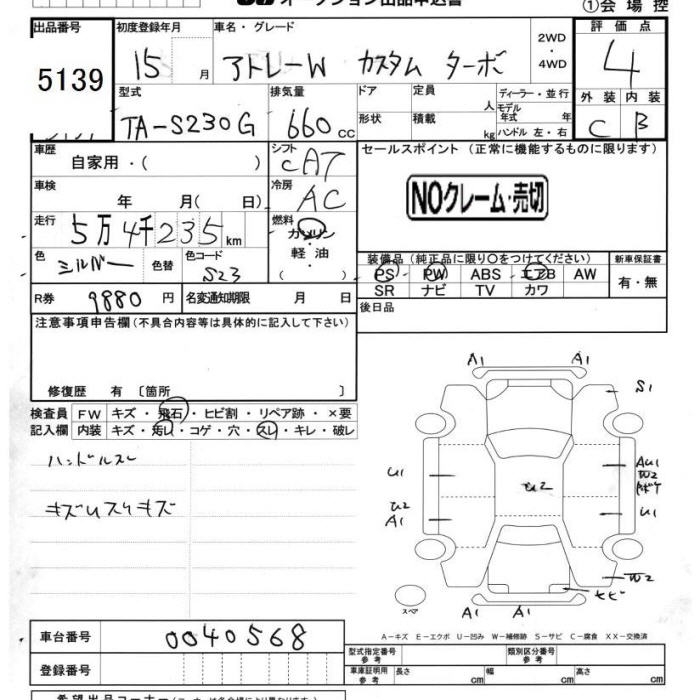 オークション出品申込書
①会場控
出品番号 初度登録年月 車名・グレード 2WD・4WD 評価点
5139 15 月 アトレーW カスタム ターボ 4
型式 排気量 ドア 定員 人 ディーラー・並行 外装 内装
TA-S230G 660 cc 形状 積載 kg モデル年式 年 ハンドル 左・右 C B
車歴 自家用・( ) シフト CAT セールスポイント (正常に機能するものに限ります)
車検 年 月( 日) 冷房 AC
NOクレーム・売切
走行 5万4千235 km 燃料 ガソリン・軽油 ( )
色 シルバー 色替 色コード S23
装備品 (純正品に限り○をつけてください) 新車保証書
PS PW ABS エアB AW 有・無
SR ナビ TV カワ
R券 9880 円 名変通知期限 月 日
後日品
注意事項申告欄 (不具合内容等は具体的に記入して下さい)
修復歴 有 [箇所 ]
検査員 FW キズ・飛石・ヒビ割・リペア跡・×要
記入欄 内装 キズ・汚レ・コゲ・穴・スレ・キレ・破レ
ハンドルスレ
キズUスリキズ
A1 A1
S1
U1 AU1
W2
U2 U2
A1 U1
W2
ヒビ
スペ A1 A1
A−キズ E−エクボ U−凹み W−補修跡 S−サビ C−腐食 XX−交換済
車台番号 0040568
登録番号
型式指定番号 参考 類別区分番号 参考
車庫証明用 参考 長さ cm 幅 cm 高さ cm
希望出品コーナー